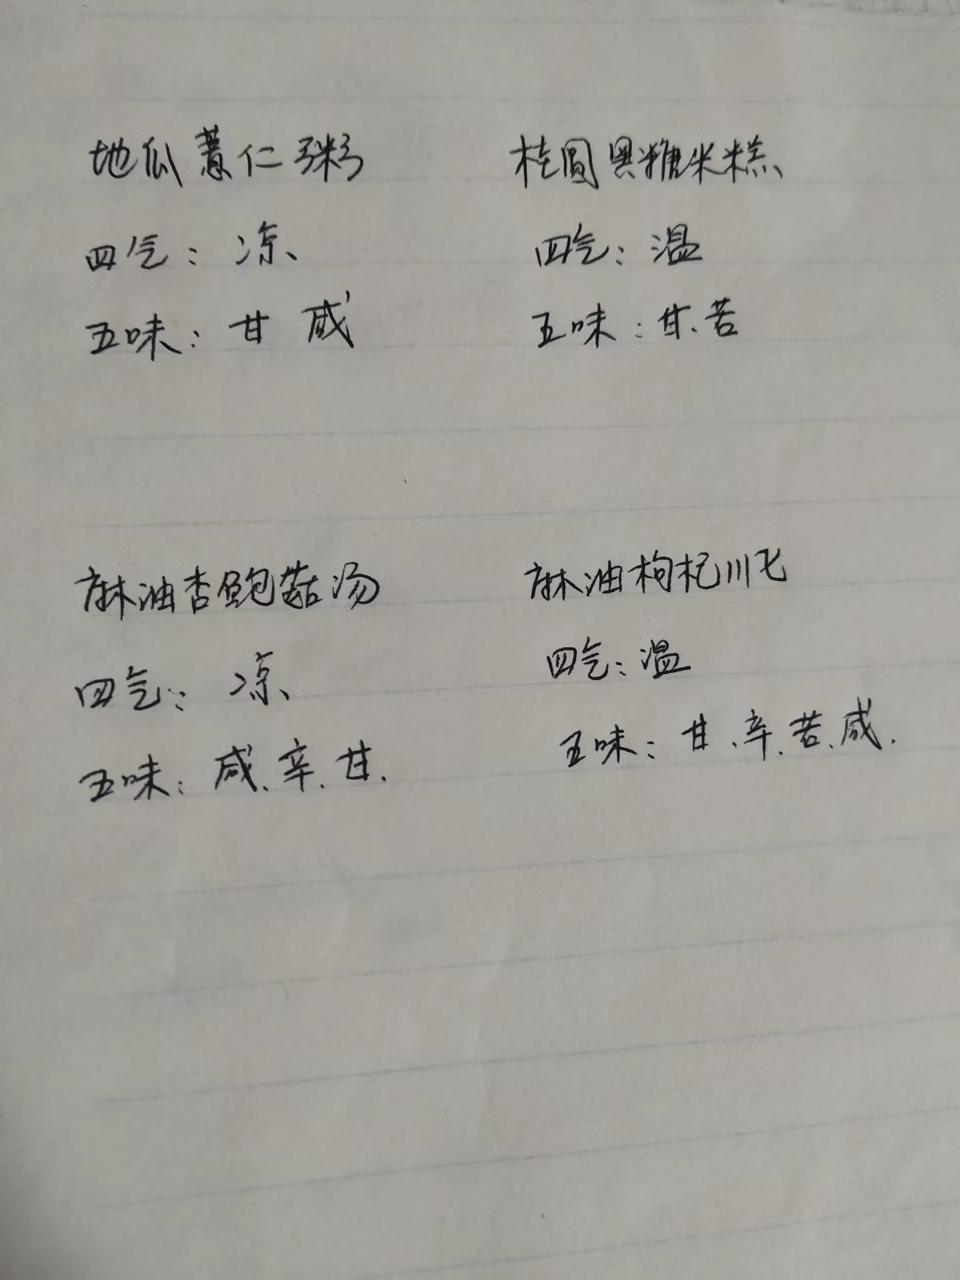 地瓜薏仁粥
四气：凉
五味：甘 咸
桂圆黑糖米糕
四气：温
五味：甘、苦
麻油杏鲍菇汤
四气：凉
五味：咸、辛、甘.
麻油枸杞川七
四气：温
五味：甘、辛、苦、咸.